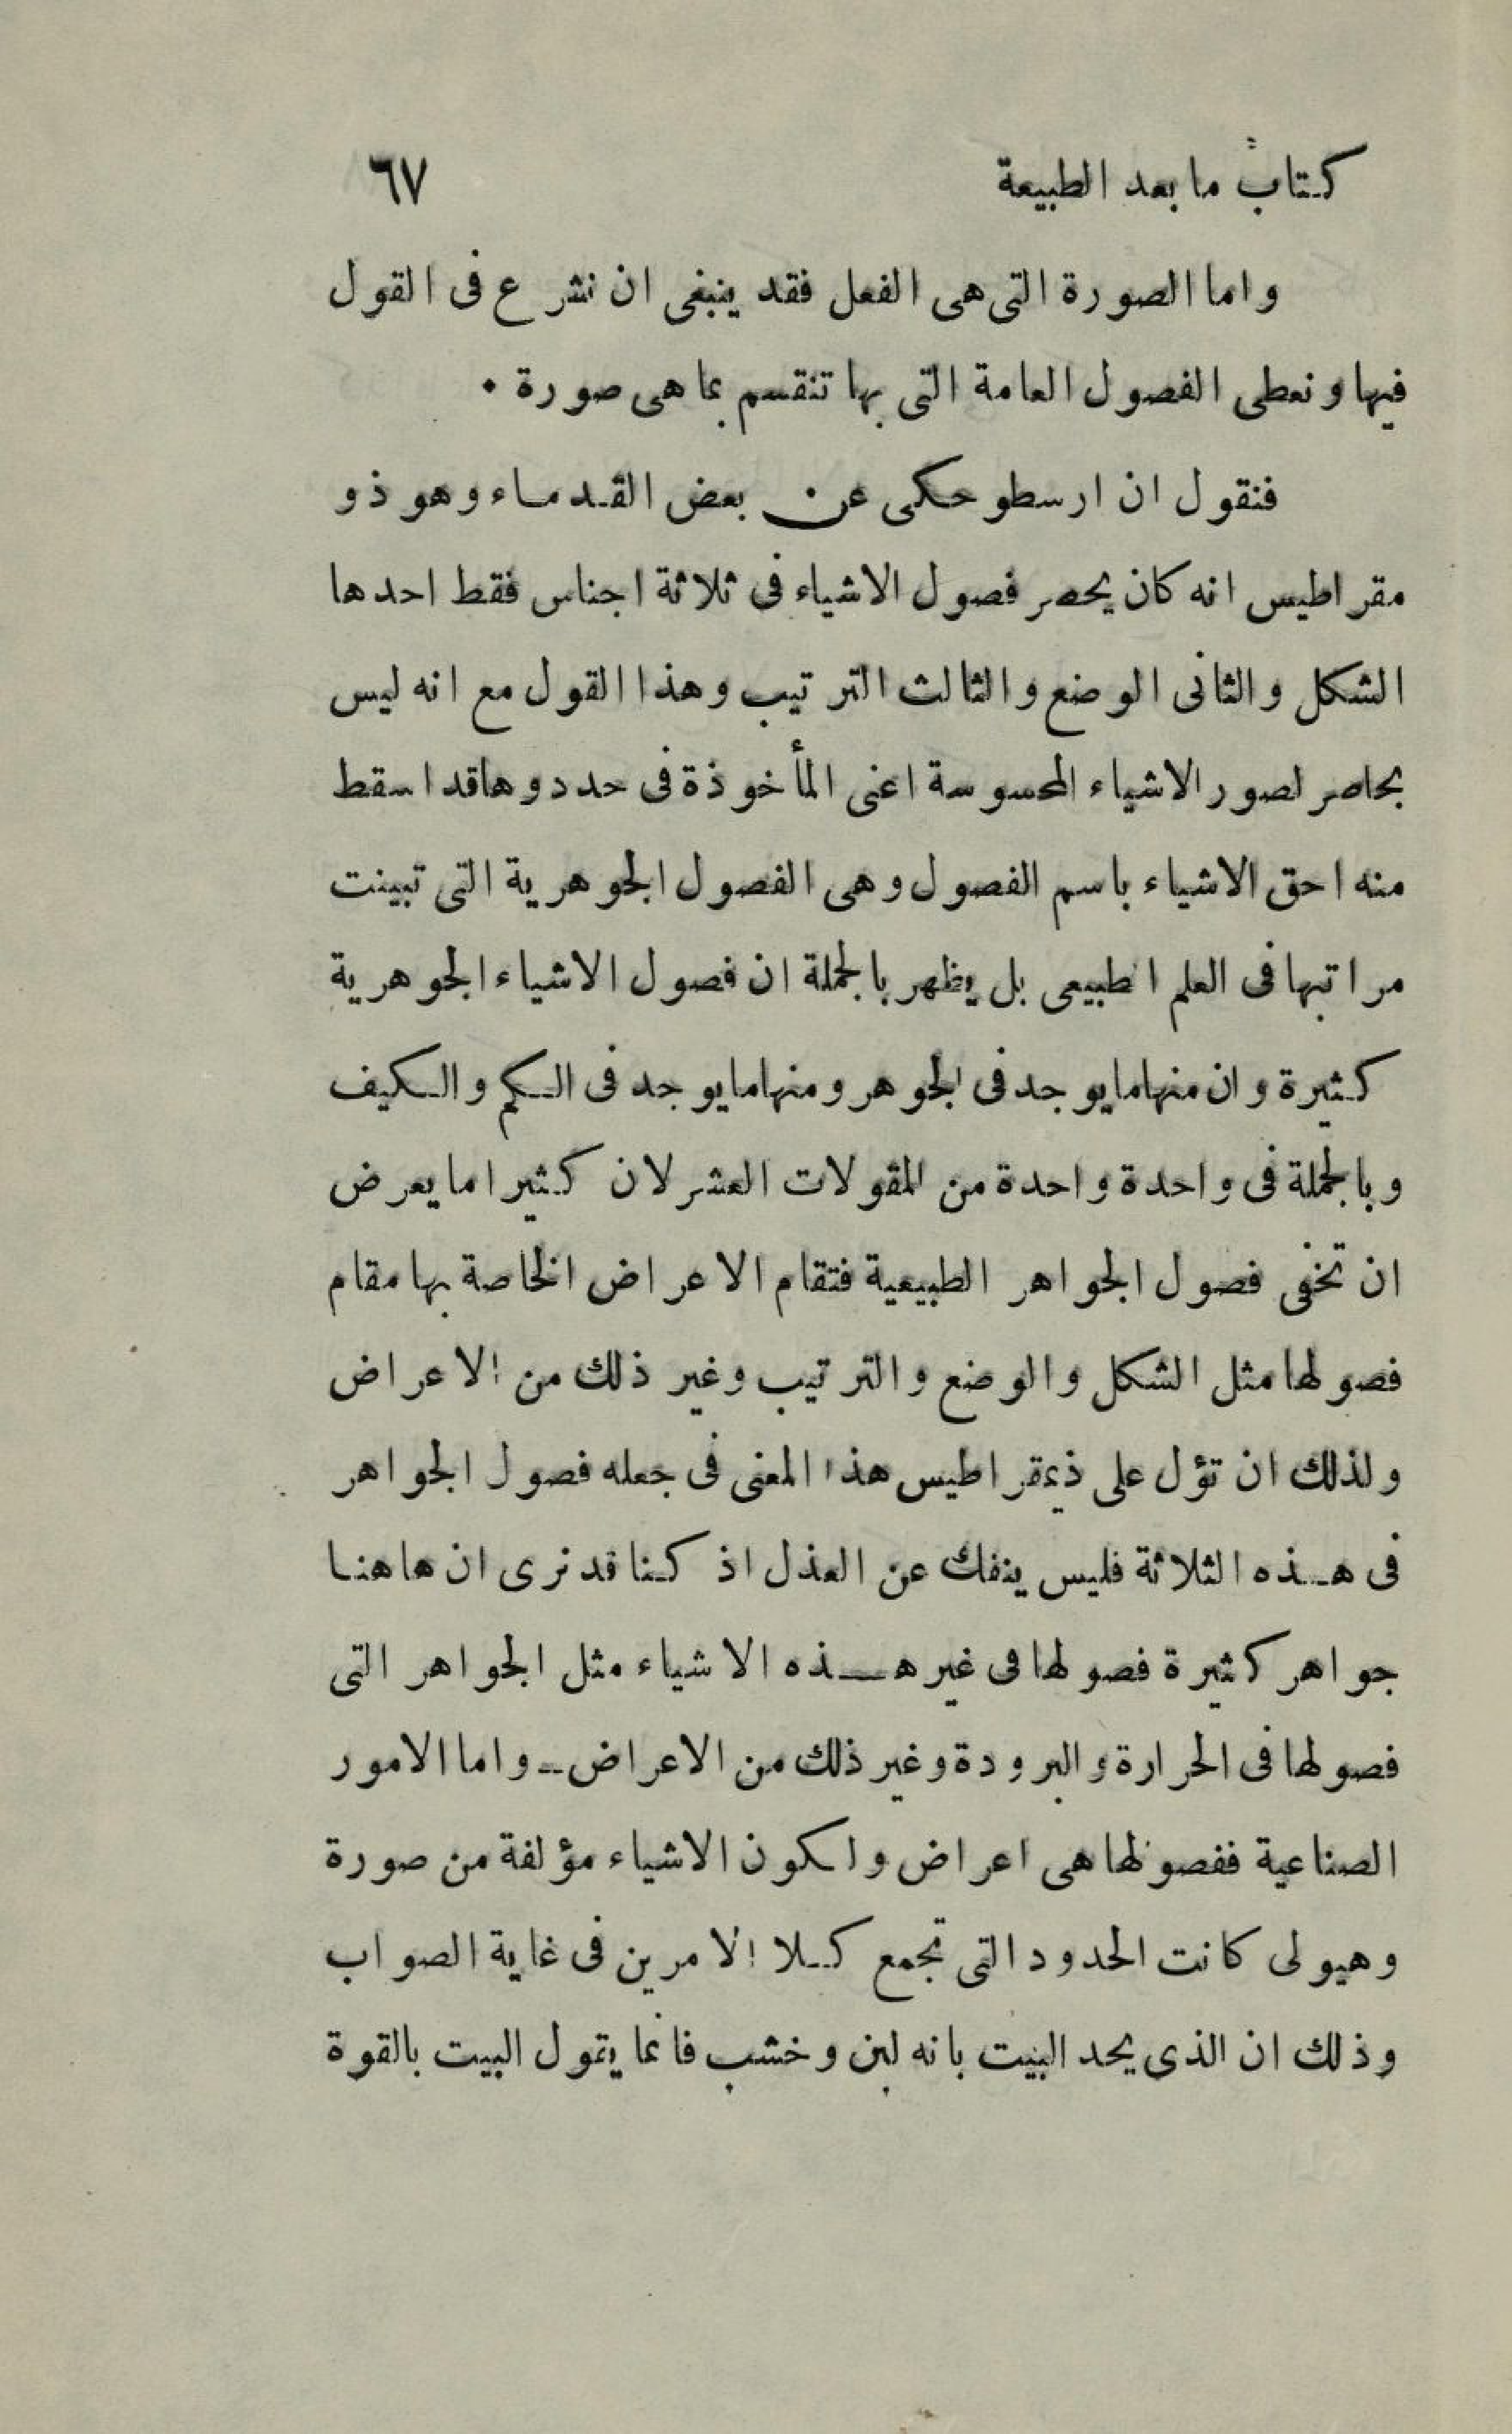 كتاب ما بعد الطبيعة ٦٧
واما الصورة التى هى الفعل فقد ينبغى ان نشرع فى القول
فيها ونعطى الفصول العامة التى بها تنقسم بما هى صورة .
فنقول ان ارسطو حكى عن بعض القدماء وهو ذو
مقراطيس انه كان يحصر فصول الاشياء فى ثلاثة اجناس فقط احدها
الشكل والثانى الوضع والثالث الترتيب وهذا القول مع انه ليس
بحاصر لصور الاشياء المحسوسة اعنى المأخوذة فى حدودها قد اسقط
منه احق الاشياء باسم الفصول وهى الفصول الجوهرية التى تبينت
مراتبها فى العلم الطبيعى بل يظهر بالجملة ان فصول الاشياء الجوهرية
كثيرة وان منها ما يوجد فى الجوهر ومنها ما يوجد فى الكم والكيف
وبالجملة فى واحدة واحدة من المقولات العشر لان كثيرا ما يعرض
ان تخفى فصول الجواهر الطبيعية فتقام الاعراض الخاصة بها مقام
فصولها مثل الشكل والوضع والترتيب وغير ذلك من الاعراض
ولذلك ان تؤل على ذيمقراطيس هذا المعنى فى جعله فصول الجواهر
فى هذه الثلاثة فليس ينفك عن العذل اذ كنا قد نرى ان هاهنا
جواهر كثيرة فصولها فى غير هذه الاشياء مثل الجواهر التى
فصولها فى الحرارة والبرودة وغير ذلك من الاعراض ــ واما الامور
الصناعية ففصولها هى اعراض ولكون الاشياء مؤلفة من صورة
وهيولى كانت الحدود التى تجمع كلا الامرين فى غاية الصواب
وذلك ان الذى يحد البيت بانه لبن وخشب فانما يقول البيت بالقوة